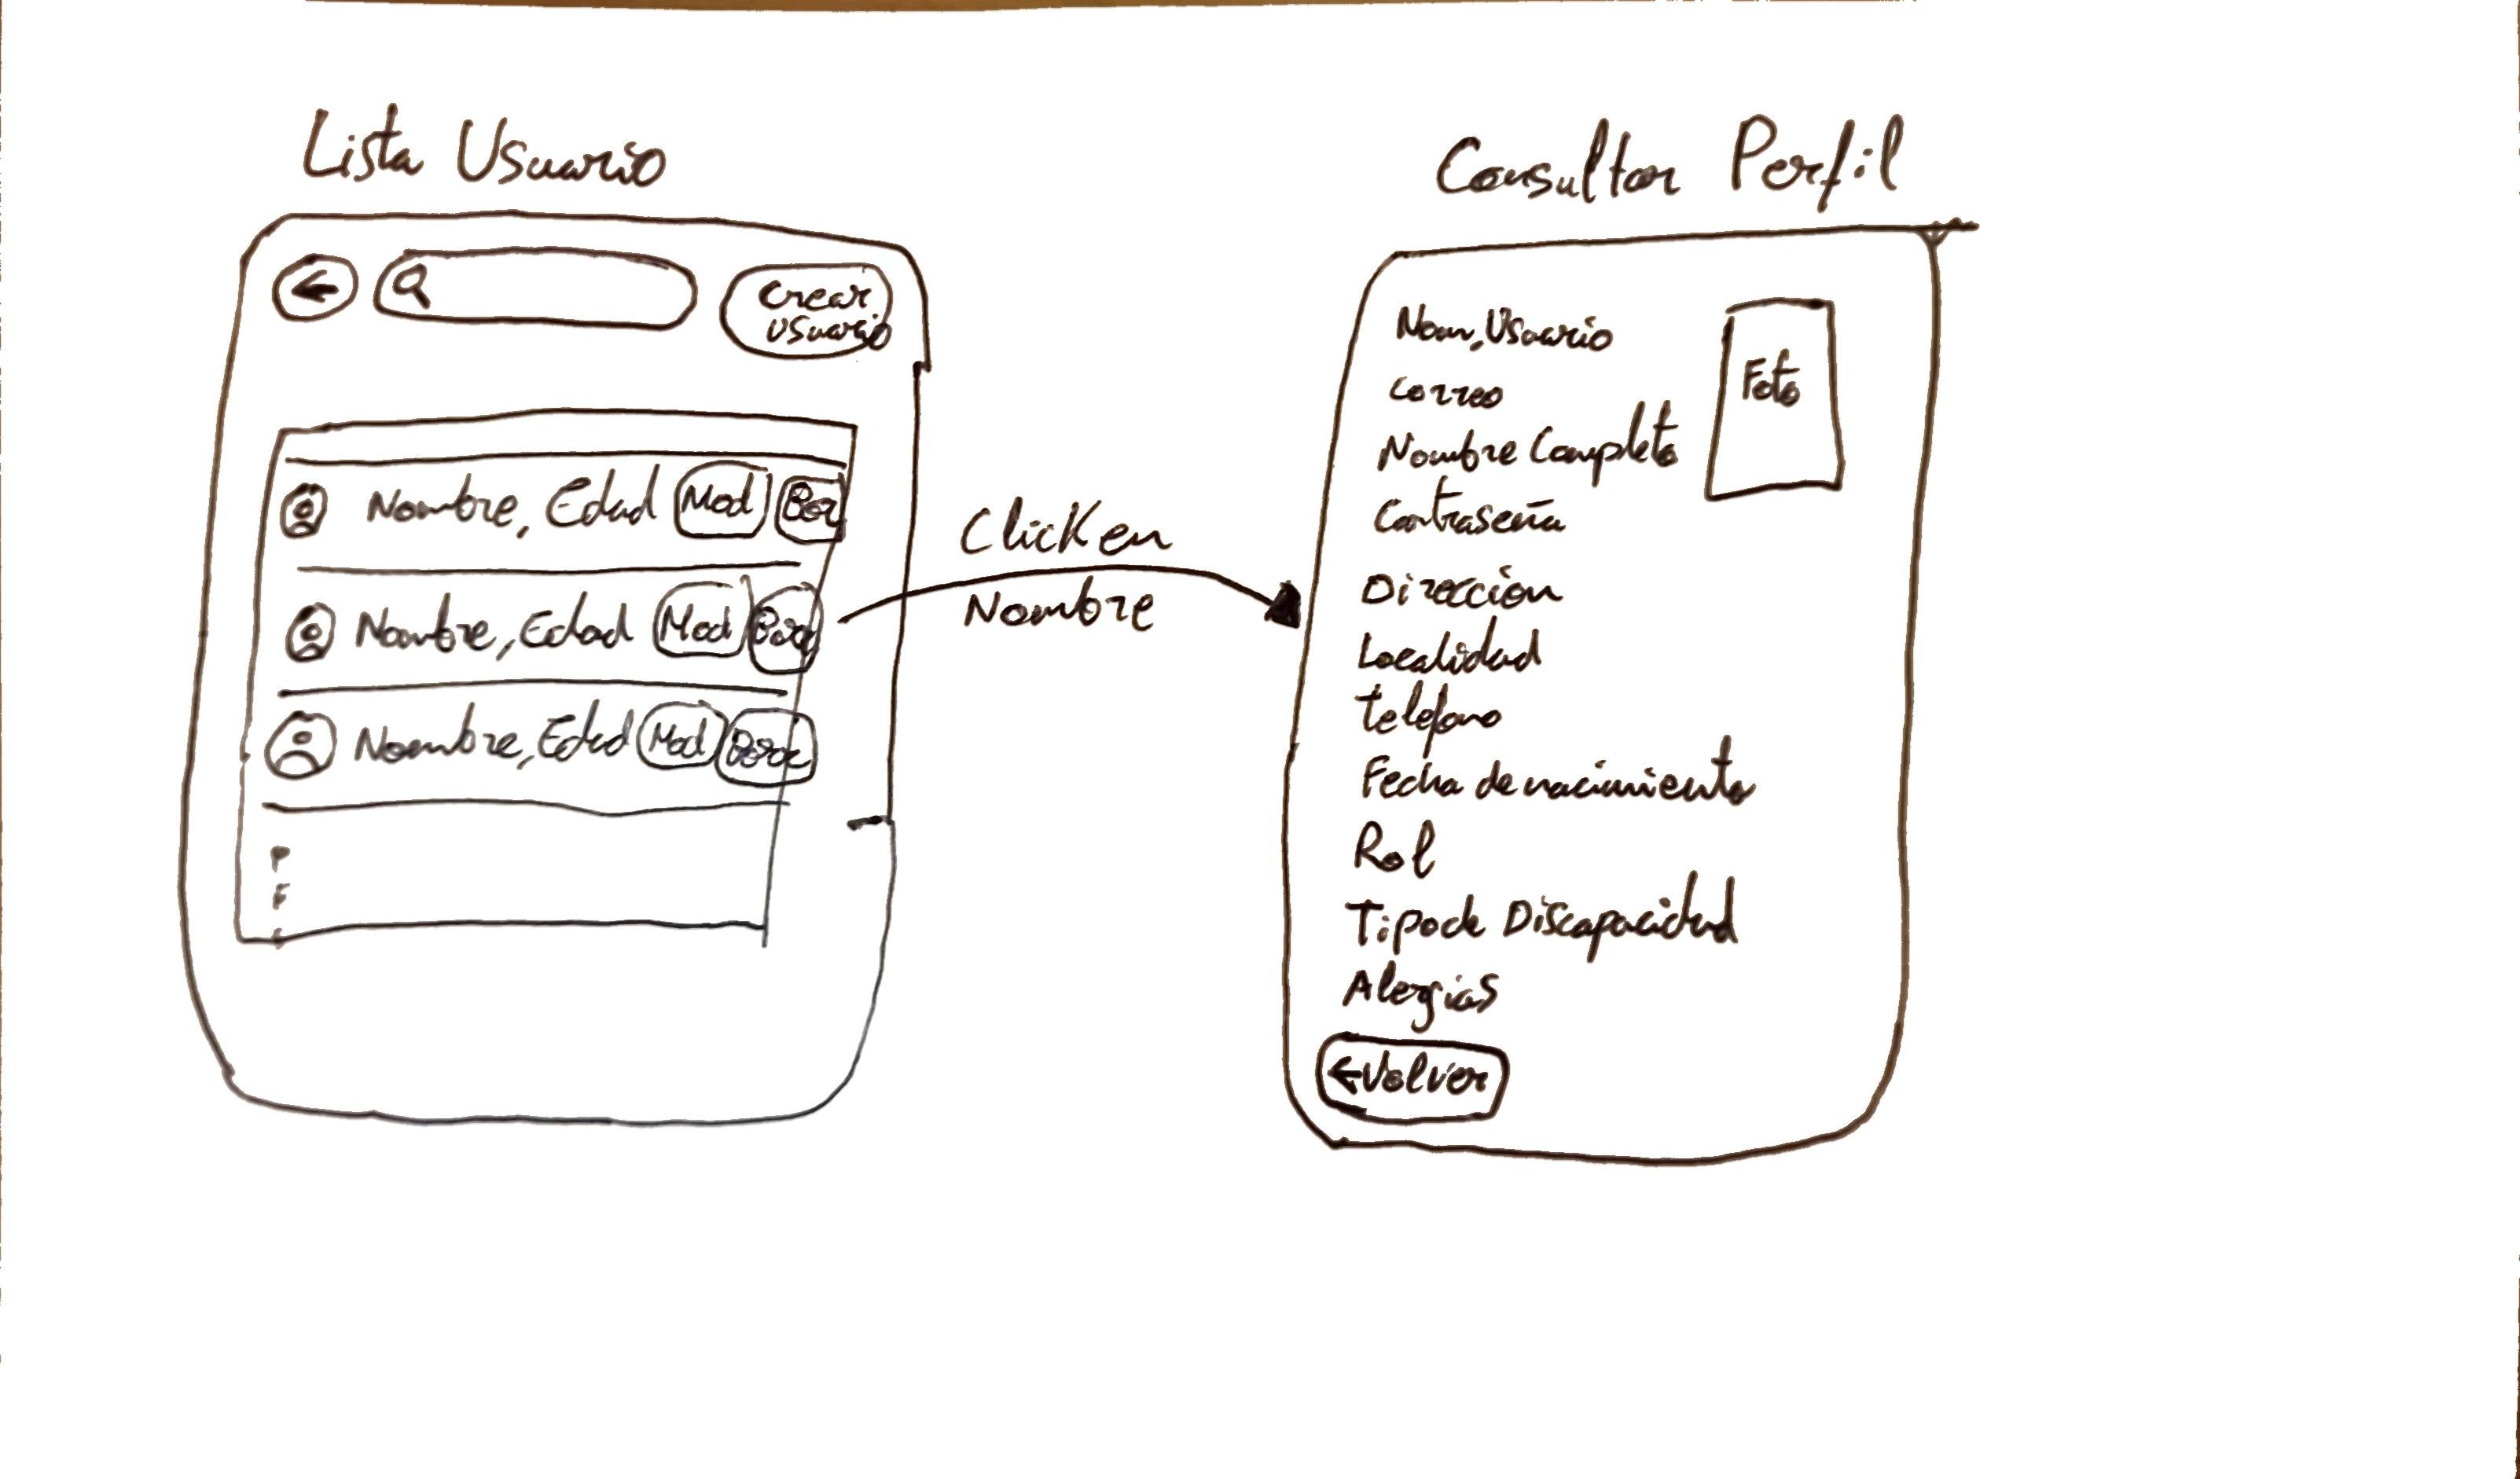 Lista Usuario
Crear
usuario
Nombre, Edad Mod Bor
Nombre, Edad Mod Borr
Nombre, Edad Mod Borr
Click en
Nombre
Consultar Perfil
Nom. Usuario
Correo
Nombre Completo
Contraseña
Dirección
Localidad
Telefono
Fecha de nacimiento
Rol
Tipo de Discapacidad
Alergias
←Volver
Foto